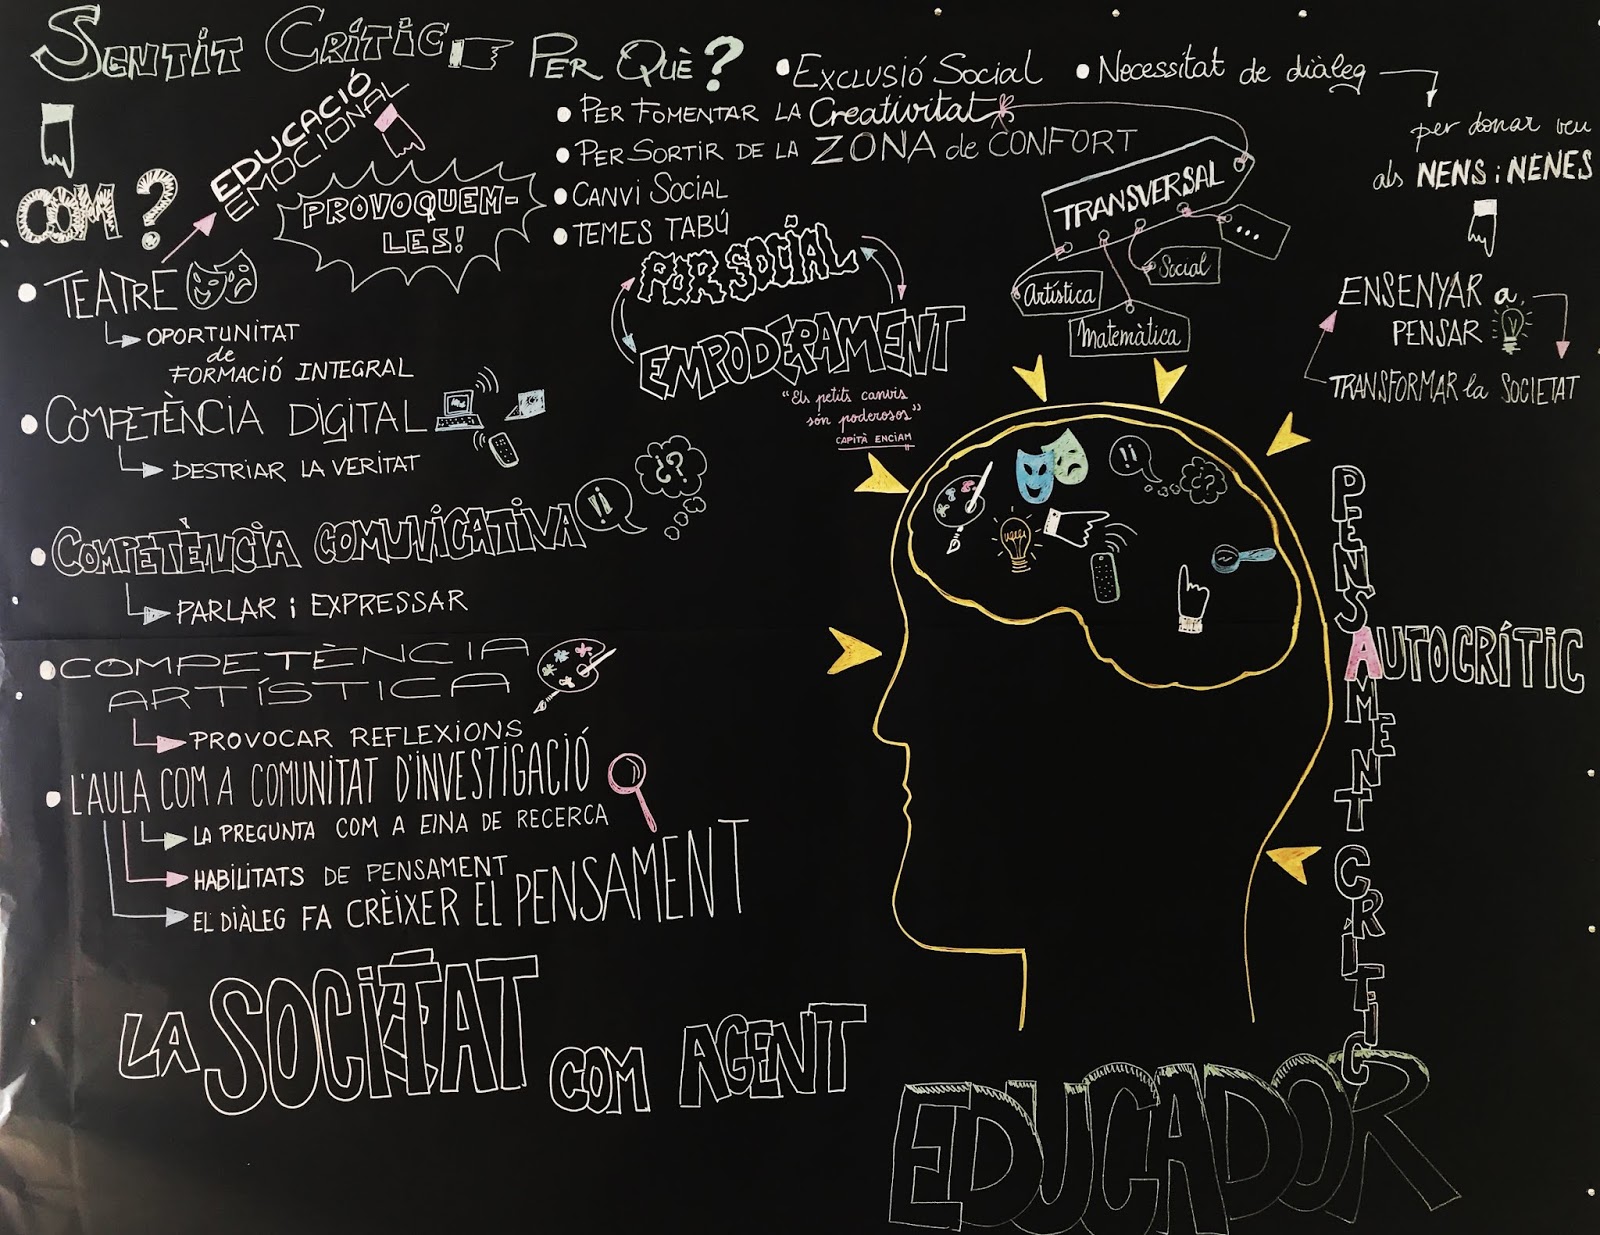 SENTIT CRÍTIC
PER QUÈ?
• EXCLUSIÓ SOCIAL
• Necessitat de diàleg
per donar veu
als NENS i NENES
ENSENYAR a
PENSAR
TRANSFORMAR la SOCIETAT
• PER FOMENTAR LA Creativitat
• PER SORTIR DE LA ZONA de CONFORT
• CANVI SOCIAL
• TEMES TABÚ
TRANSVERSAL
Artística
Matemàtica
Social
...
POR SOCIAL
EMPODERAMENT
"Els petits canvis
són poderosos"
CAPITÀ ENCIAM
COM?
EDUCACIÓ
EMOCIONAL
PROVOQUEM-
LES!
• TEATRE
OPORTUNITAT
de
FORMACIÓ INTEGRAL
• COMPETÈNCIA DIGITAL
DESTRIAR LA VERITAT
• COMPETÈNCIA COMUNICATIVA
!!
¿?
PARLAR i EXPRESSAR
• COMPETÈNCIA
ARTÍSTICA
PROVOCAR REFLEXIONS
• L'AULA COM A COMUNITAT D'INVESTIGACIÓ
LA PREGUNTA COM A EINA DE RECERCA
HABILITATS DE PENSAMENT
EL DIÀLEG FA CRÈIXER EL PENSAMENT
!!
¿?
PENSAMENT CRÍTIC
AUTOCRÍTIC
LA SOCIETAT COM AGENT
EDUCADOR